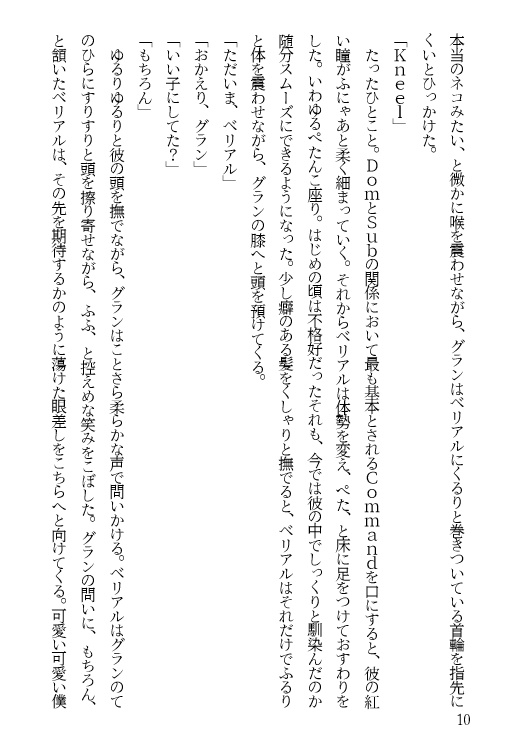 本当のネコみたい、と微かに喉を震わせながら、グランはベリアルにくるりと巻きついている首輪を指先に
くいとひっかけた。
「Ｋｎｅｅｌ」
　たったひとこと。ＤｏｍとＳｕｂの関係において最も基本とされるＣｏｍｍａｎｄを口にすると、彼の紅
い瞳がふにゃあと柔く細まっていく。それからベリアルは体勢を変え、ぺた、と床に足をつけておすわりを
した。いわゆるぺたんこ座り。はじめの頃は不格好だったそれも、今では彼の中でしっくりと馴染んだのか
随分スムーズにできるようになった。少し癖のある髪をくしゃりと撫でると、ベリアルはそれだけでふるり
と体を震わせながら、グランの膝へと頭を預けてくる。
「ただいま、ベリアル」
「おかえり、グラン」
「いい子にしてた？」
「もちろん」
　ゆるりゆるりと彼の頭を撫でながら、グランはことさら柔らかな声で問いかける。ベリアルはグランのて
のひらにすりすりと頭を擦り寄せながら、ふふ、と控えめな笑みをこぼした。グランの問いに、もちろん、
と頷いたベリアルは、その先を期待するかのように蕩けた眼差しをこちらへと向けてくる。可愛い可愛い僕
10